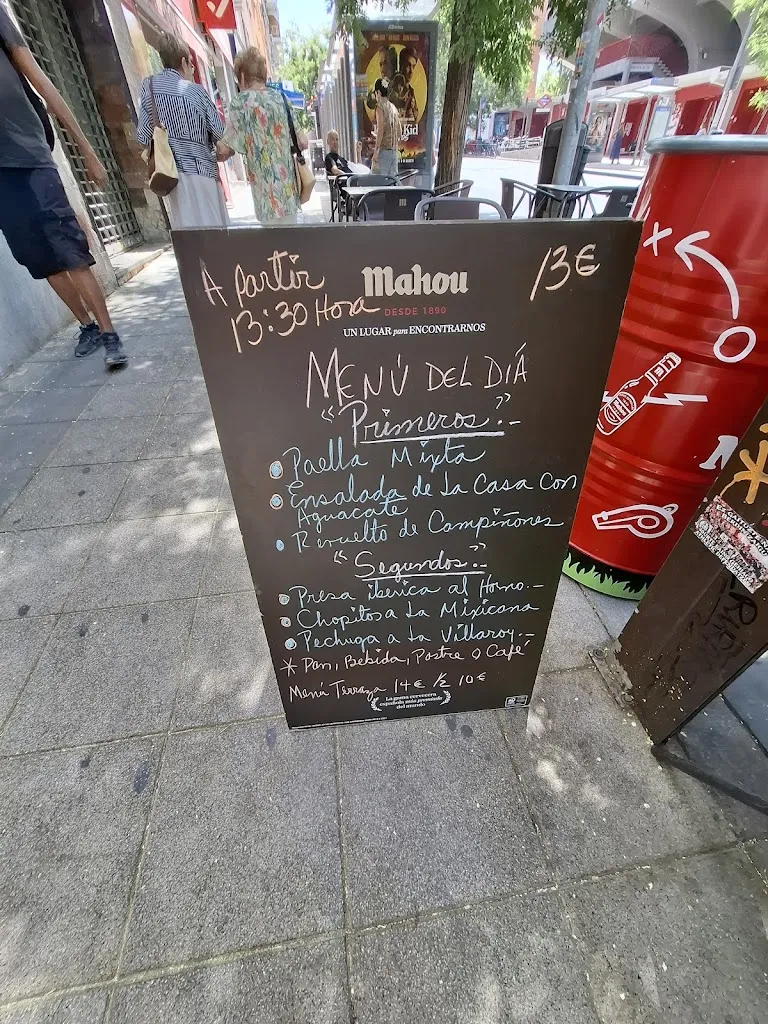 A Partir
13:30 Hora
13€
Mahou
DESDE 1890
UN LUGAR para ENCONTRARNOS
MENÚ DEL DIÁ
"Primeros".-
Paella Mixta
Ensalada de La Casa Con
Aguacate
Revuelto de Campiñones
"Segundos".-
Presa iberica al Horno.-
Chopitos a La Mixicana
Pechuga a La Villaroy.-
* Pan, Bebida, Postre o Café
Menú Terraza 14€ 1/2 10€
La gama cervecera
española más premiada
del mundo
Kid